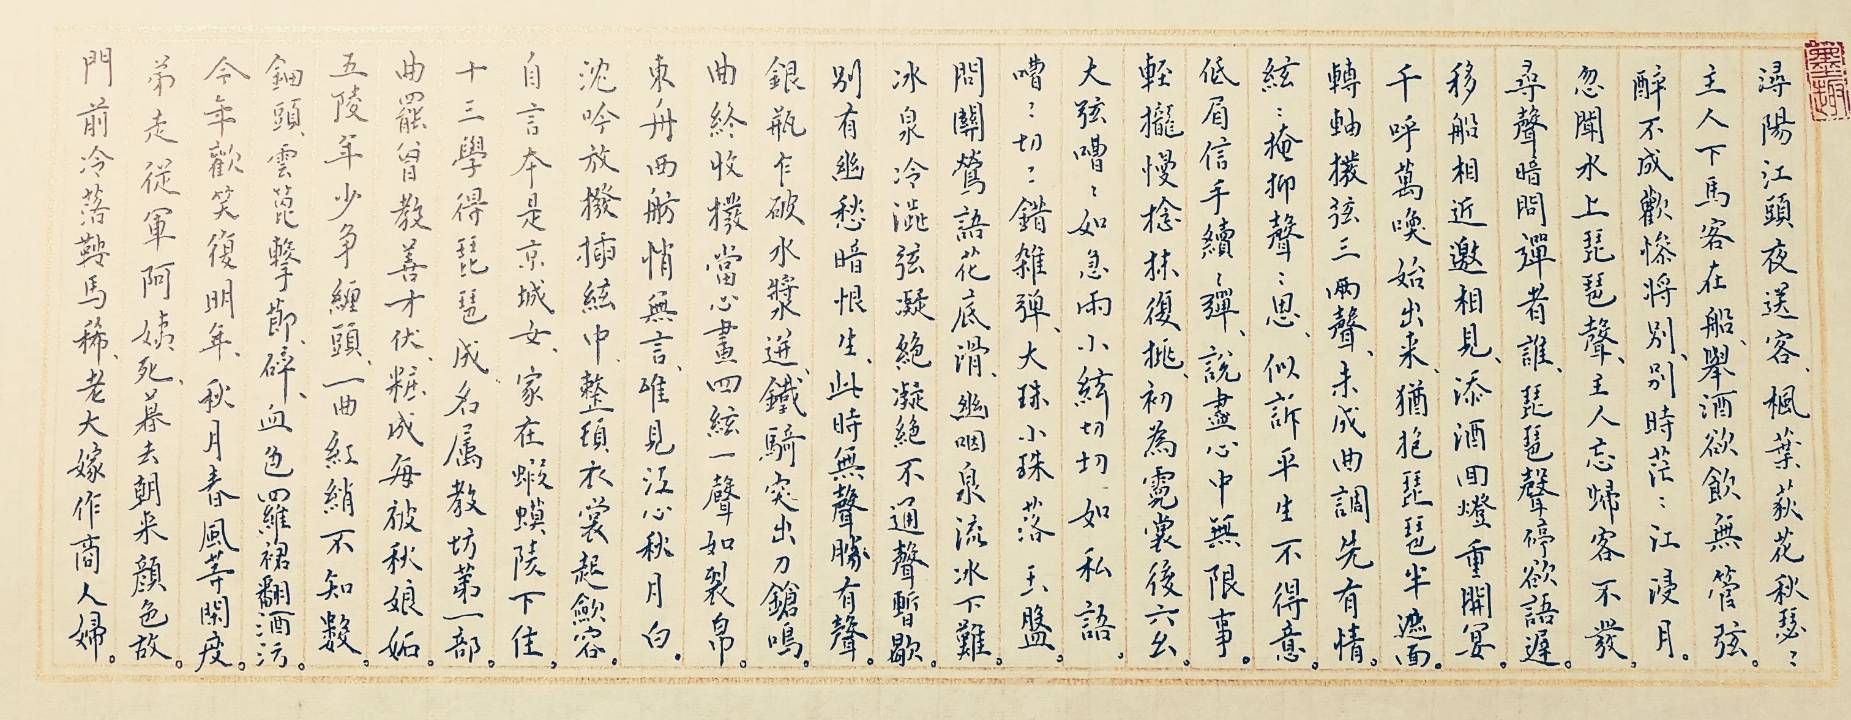 潯陽江頭夜送客、楓葉荻花秋瑟〻
主人下馬客在船、舉酒欲飲無管弦。
醉不成歡慘將別、別時茫〻江浸月。
忽聞水上琵琶聲、主人忘歸客不發
尋聲暗問彈者誰、琵琶聲停欲語遲。
移船相近邀相見、添酒回燈重開宴。
千呼萬喚始出来、猶抱琵琶半遮面。
轉軸撥弦三兩聲、未成曲調先有情。
絃〻掩抑聲〻思、似訴平生不得意。
低眉信手續〻彈、說盡心中無限事。
輕攏慢捻抹復挑、初為霓裳後六幺。
大弦嘈〻如急雨小絃切切如私語。
嘈〻切〻錯雜弹、大珠小珠落玉盤。
間關鶯語花底滑、幽咽泉流冰下難。
冰泉冷澁弦凝絕凝絕不通聲暫歇。
別有幽愁暗恨生、此時無聲勝有聲。
銀瓶乍破水漿迸、鐵騎突出刀鎗鳴。
曲終收撥當心畫四絃一聲如裂帛。
東舟西舫悄無言、唯見江心秋月白。
沈吟放撥插絃中、整頓衣裳起歛容。
自言本是京城女、家在蝦蟆陵下住。
十三學得琵琶成、名属教坊第一部。
曲罷曾教善才伏、粧成每被秋娘妬。
五陵年少争纏頭、一曲紅綃不知數。
鈿頭雲篦擊節碎、血色羅裙翻酒污。
今年歡笑復明年、秋月春風等閑度。
弟走従軍阿姨死、暮去朝来顔色故。
門前冷落鞍馬稀、老大嫁作商人婦。